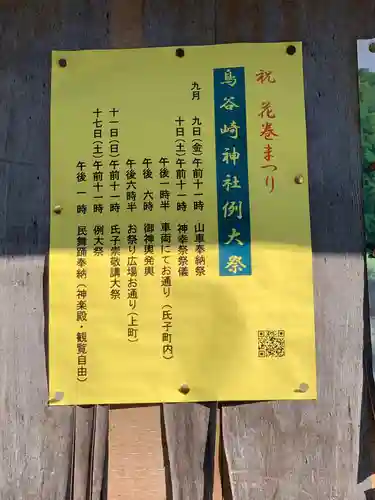 祝 花巻まつり
鳥谷崎神社例大祭
九月 九日(金)午前十一時 山車奉納祭
十日(土)午前十一時 神幸祭祭儀
午後一時半 車両にてお通り(氏子町内)
午後 六時 御神輿発輿
午後六時半 お祭り広場お通り(上町)
十一日(日)午前十一時 氏子崇敬講大祭
十七日(土)午前十一時 例大祭
午後 一時 民舞踊奉納(神楽殿・観覧自由)